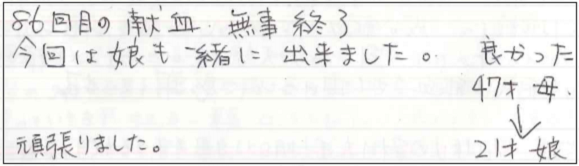 86回目の献血.無事終了
今回は娘も一緒に出来ました。 良かった
47才 母.
↓
頑張りました。 21才 娘